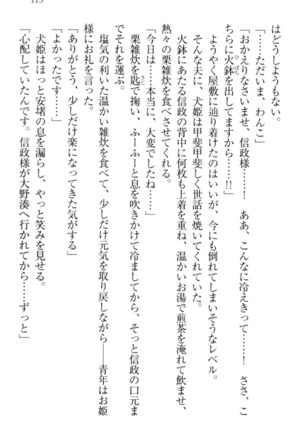 115
はどうしようもない。
「……ただいま、わんこ」
「おかえりなさいませ、信政様……！　ああ、こんなに冷えきって……！　ささ、こ
ちらに火鉢を出してますから……!!」
　ようやく屋敷に辿り着けたのはいいが、今にも倒れてしまいそうなレベル。
　そんな夫に、犬姫は甲斐甲斐しく世話を焼いてくれていた。
　火鉢にあたる信政の背中に何枚も上着を重ね、温かいお湯で煎茶を淹れて飲ませ、
熱々の栗雑炊を食べさせてくれる。
「今日は……本当に、大変でしたね……」
　栗雑炊を匙で掬い、ふーふーと息を吹きかけて冷ましてから、そっと信政の口元ま
でそれを運ぶ。
　塩気の利いた温かい雑炊を食べて、少しだけ元気を取り戻しながら――青年はお姫
様にお礼を言った。
「ありがとう、少しだけ楽になってきた気がする」
「よかったです……」
　犬姫はほっと安堵の息を漏らし、やっと笑みを見せる。
「心配していたんです。信政様が大野湊へ行かれてから……ずっと」